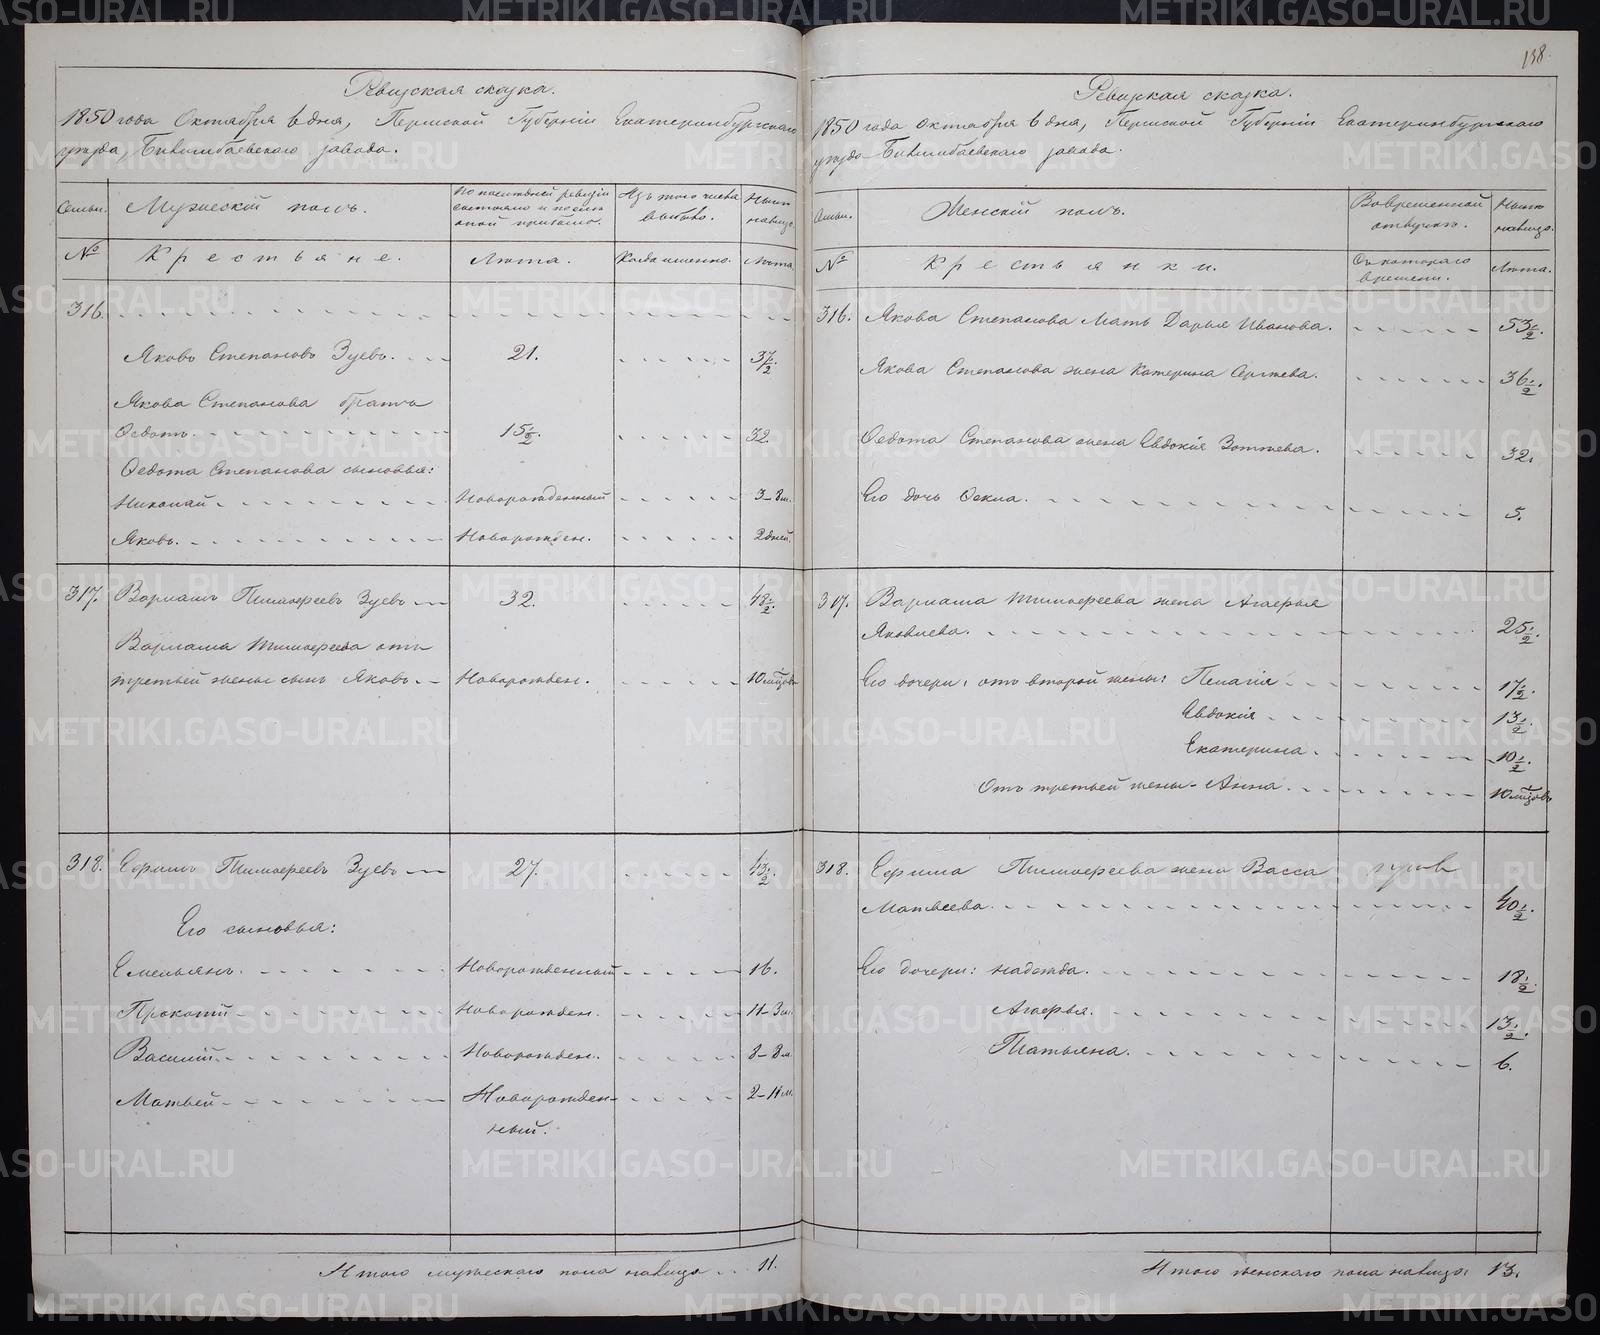 138.
Ревизская сказка.
1850 года Октября 6 дня, Пермской Губерніи Екатеринбургскаго
уезда, Билимбаевскаго завода.
Семьи.
Мужескій полъ.
По последней ревизіи состояло и после оной прибыло.
Изъ того числа выбыло.
Ныне налицо.
№
Крестьяне.
Лета.
Когда именно.
Лета.
316.
Яковъ Степановъ Зуевъ. 21. 37 1/2
Якова Степанова братъ
Ѳедотъ. 15 1/2. 32.
Ѳедота Степанова сыновья:
Николай. Новорожденный 3-8 м.
Яковъ. Новорожден. 2 дней.
317. Варламъ Тимоѳеевъ Зуевъ 32. 48 1/2.
Варлама Тимоѳеева отъ
третьей жены сынъ Яковъ. Новорожден. 10 м-цовъ
318. Ефимъ Тимоѳеевъ Зуевъ 27. 43 1/2
Его сыновья:
Емельянъ. Новорожденный 16.
Прокопій Новорожден. 11-3 м.
Василій. Новорожден. 8-8 м
Матвей Новорожден-
ный. 2-11 м.
Итого мужескаго пола налицо 11.
Ревизская сказка.
1850 года Октября 6 дня, Пермской Губерніи Екатеринбургскаго
уезда Билимбаевскаго завода.
Семьи.
Женскій полъ.
Во временной отлучке.
Ныне налицо.
№
Крестьянки.
Съ котораго времени.
Лета.
316. Якова Степанова Мать Дарья Иванова. 53 1/2.
Якова Степанова жена Катерина Сергеева. 36 1/2.
Ѳедота Степанова жена Евдокія Зотеева. 32.
Его дочь Ѳекла. 5.
317. Варлама Тимоѳеева жена Агафья
Яковлева. 25 1/2.
Его дочери: отъ второй жены: Пелагія 17 1/2.
Евдокія 13 1/2.
Екатерина. 10 1/2.
Отъ третьей жены - Анна. 10 м-цовъ
318. Ефима Тимоѳеева жена Васса
Матвеева. 40 1/2.
Его дочери: Надежда. 18 1/2.
Агафья. 13 1/2.
Татьяна. 6.
Итого женскаго пола налицо: 13.
METRIKI.GASO-URAL.RU